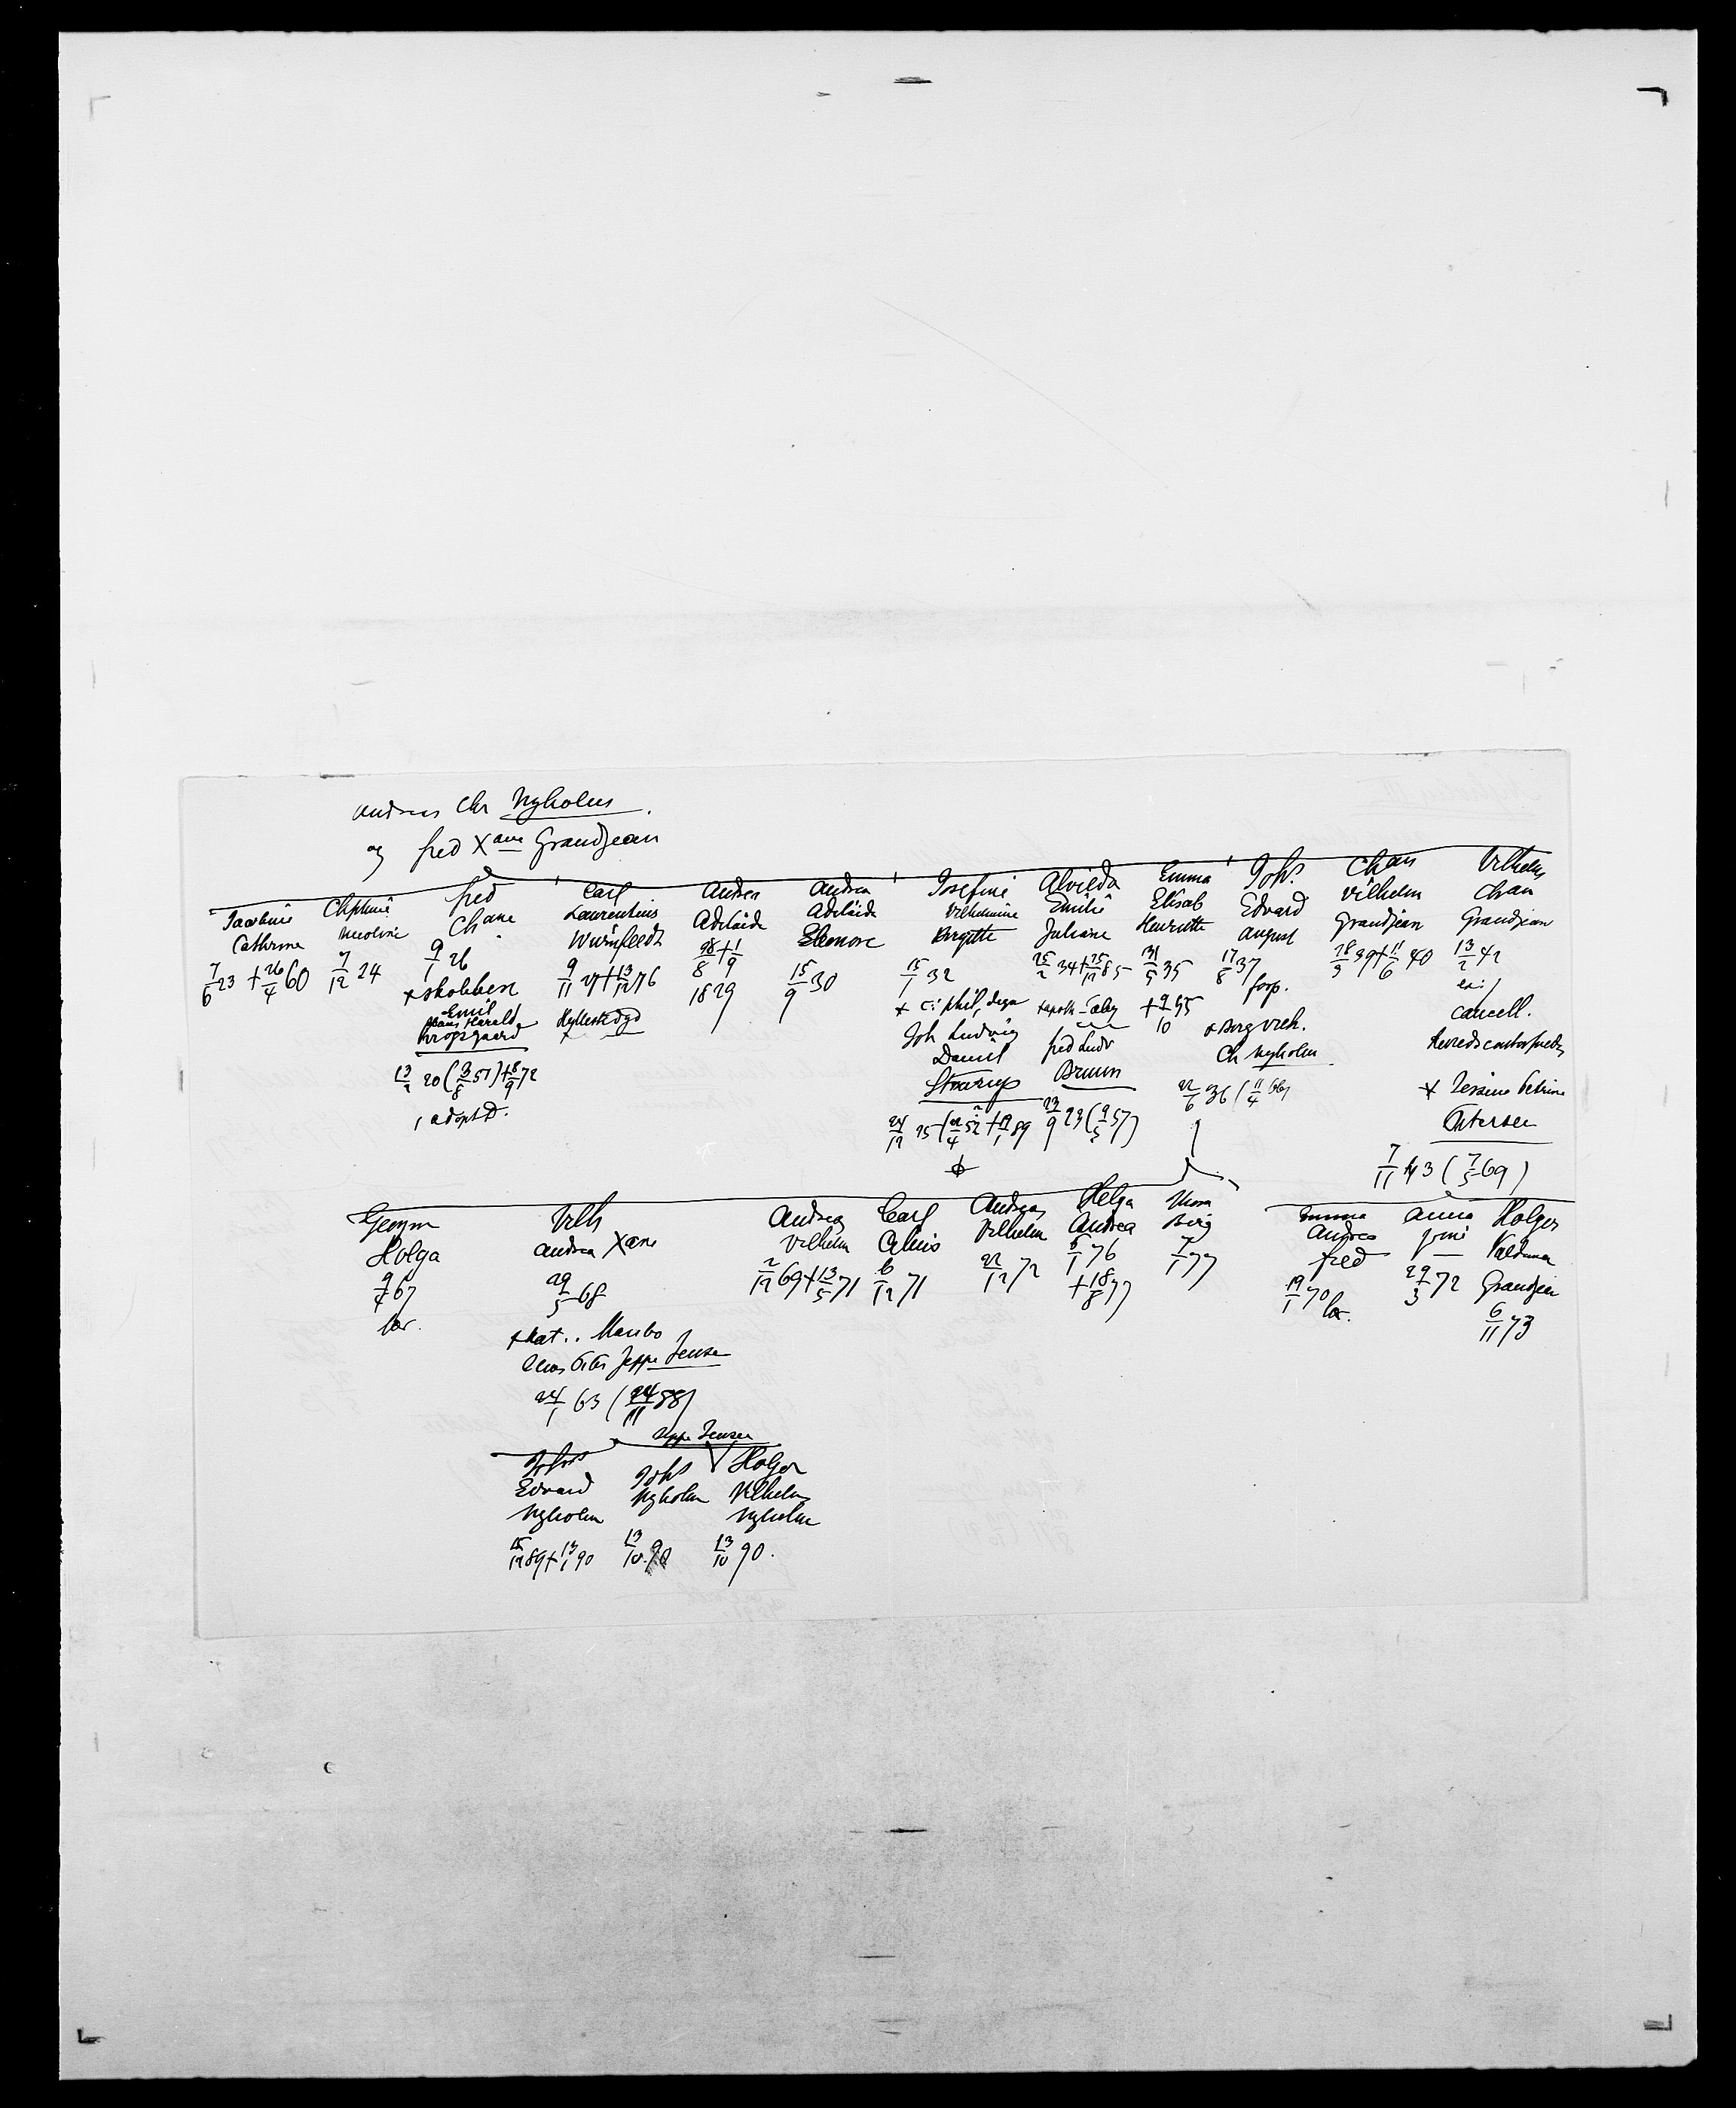 Andreas Chr Nyholm.
og fred Xane Grandjean
Jacobine
Cathrine
7/6 23 + 26/4 60
Chphine
Nicoline
7/12 24
fred
Chane
9/1 26
Emil
Hans Harald
Krogsgaard
13/2 20 (3/8 51) + 8/9 72
1 adopt D.
Carl
Laurentius
Wurmfeldt
9/11 27 + 13/12 76
Andrea
Adelaide
28/8 + 1/9
1829
Andrea
Adelaide
Eleonore
15/9 30
Josefine
Vilhelmine
Birgitte
15/1 32
Joh Ludvig
Daniel
Strarup
24/12 25 (22/4 52 + 12/1 89
Alvilda
Emilie
Juliane
25/2 34 + 25/12 85
fred Ludv
Bruun
23/9 23 (9/5 57)
Emma
Elisab
Henriette
31/5 35
+ 9/10 35
Johs.
Edvard
August
17/8 37
forp.
x Borg Vilh.
Ch Nyholm
22/6 36 (11/4 66)
Chan
Vilhelm
Grandjean
28/3 39 + 11/6 40
Vilhelm
Chan
Grandjean
13/2 42
cancell.
Herredscontorfuldm
x Jensine Petrine
Petersen
7/11 43 (7/5 69)
Holga
9/4 67
Vilh
Andrea Xane
29/5 68
x kat.. Maribo
Jeppe Jensen
24/1 63 (24/11 88)
Andreas
Vilhelm
2/12 69 + 13/5 71
Carl
6/12 71
Andreas
Vilhelm
22/12 72
Helga
Andrea
5/1 76
+ 18/8 77
Thora
Borg
7/1 77
Emma
Andrea
fred
19/1 70
Anna
29/3 72
Holger
Valdemar
Grandjean
6/11 73
Jeppe Jensen
Johs
Edvard
Nyholm
15/12 89 + 13/1 90
Johs
Nyholm
13/10 90
Holger
Vilhelm
Nyholm
13/10 90.